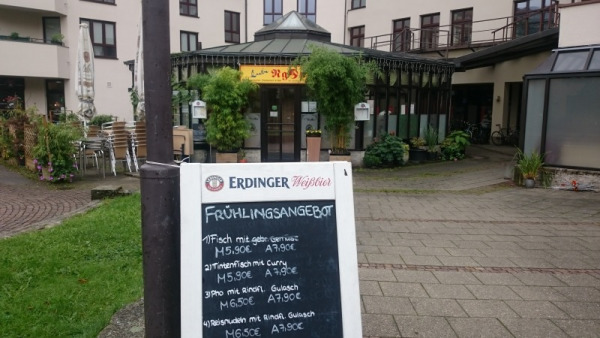 ERDINGER Weißbier
FRÜHLINGSANGEBOT
1) Fisch mit gebr. Gemüse
M 5,90€ A 7,90€
2) Tintenfisch mit Curry
M 5,90€ A 7,90€
3) Pho mit Rindfl. Gulasch
M 6,50€ A 7,90€
4) Reisnudeln mit Rindfl. Gulasch
M 6,50€ A 7,90€